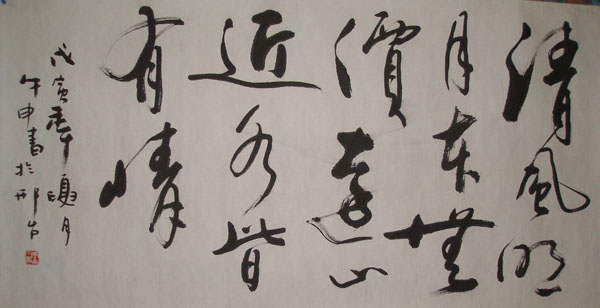 清風明
月本無
價遠山
近水皆
有情
戊寅 月
午申書於邢台